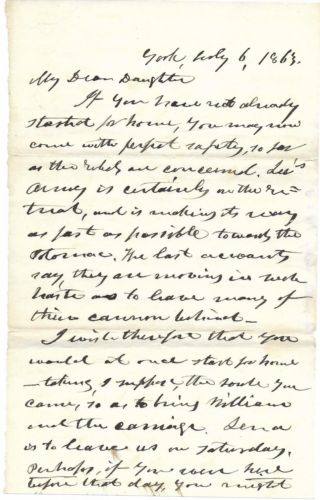 York, July 6, 1863.
My Dear Daughter
If you have not already
started for home, you may now
come with perfect safety, so far
as the rebels are concerned. Lee's
army is certainly on the re-
treat, and is making its way
as fast as possible towards the
Potomac. The last accounts
say, they are moving in such
haste as to leave many of
their cannon behind—
I wish therefore that you
would at once start for home
—taking, I suppose, the route you
came, so as to bring William
and the carriage. Lena
is to leave us on Saturday.
Perhaps, if you were here
before that day, you might